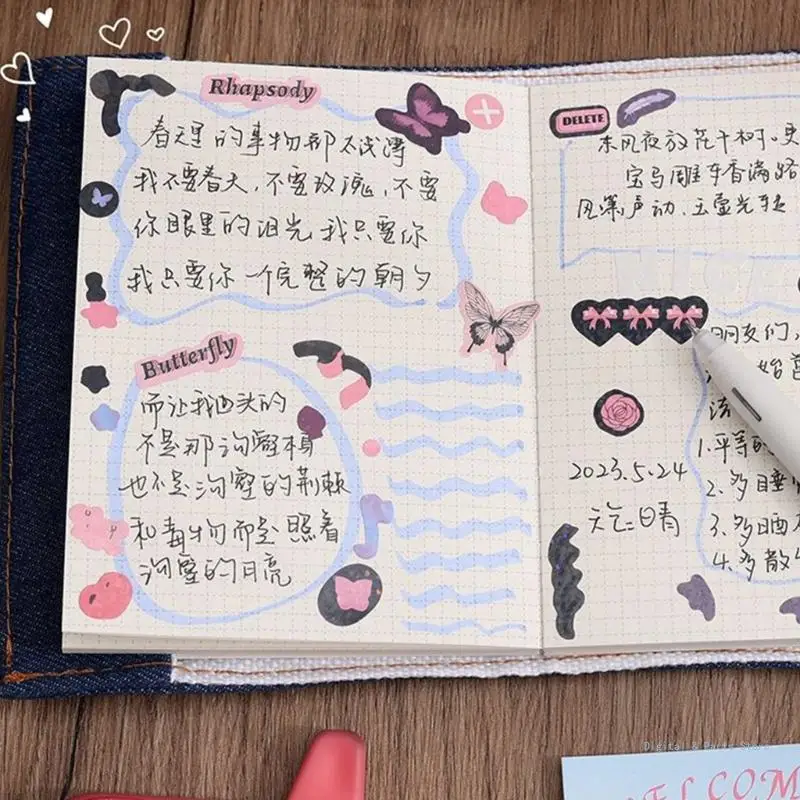 Rhapsody
春天里的事物都不浅薄
我不要春天,不要玫瑰,不要
你眼里的泪光,我只要你
我只要你一个完整的朝夕
Butterfly
而让我回头的
不是那沟壑横
也不是沟壑的荆棘
和毒物而是照着
沟壑的月亮
DELETE
东风夜放花千树.更
宝马雕车香满路
凤箫声动,玉壶光转
朋友们,
始
2023.5.24
天气:晴
1.平等的
2.多睡
3.多晒
4.多散
Digital & Parts Store
WELCOM